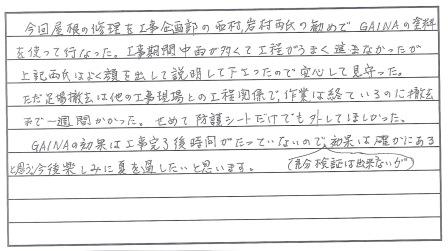 今回屋根の修理を工事企画部の西村、岩村両氏の勧めで GAINAの塗料
を使って行なった。工事期間中雨が多くて工程がうまく進まなかったが
上記両氏はよく顔を出して説明して下さったので安心して見守った。
ただ足場撤去は他の工事現場との工程関係で、作業は終ているのに撤去
まで一週間かかった。せめて防護シートだけでも外してほしかった。
GAINAの効果は工事完了後時間がたっていないので、効果は確かにある
と思う今後楽しみに夏を過したいと思います。
(自分検証は出来ないが)